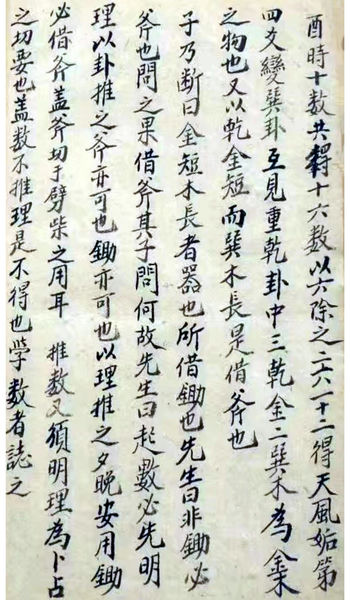 酉時十数共得十六数以六除之二六一十二得天風姤第
四爻變巽卦互見重乾卦中三乾金二巽木為金木
之物也又以乾金短而巽木長是借斧也
子乃断曰金短木長者器也所借鋤也先生曰非鋤必
斧也問之果借斧其子問何故先生曰起數必先明
理以卦推之斧亦可也鋤亦可也以理推之夕晚安用鋤
必借斧蓋斧切于劈柴之用耳 推数又須明理為卜占
之切要也蓋数不推理是不得也学数者誌之